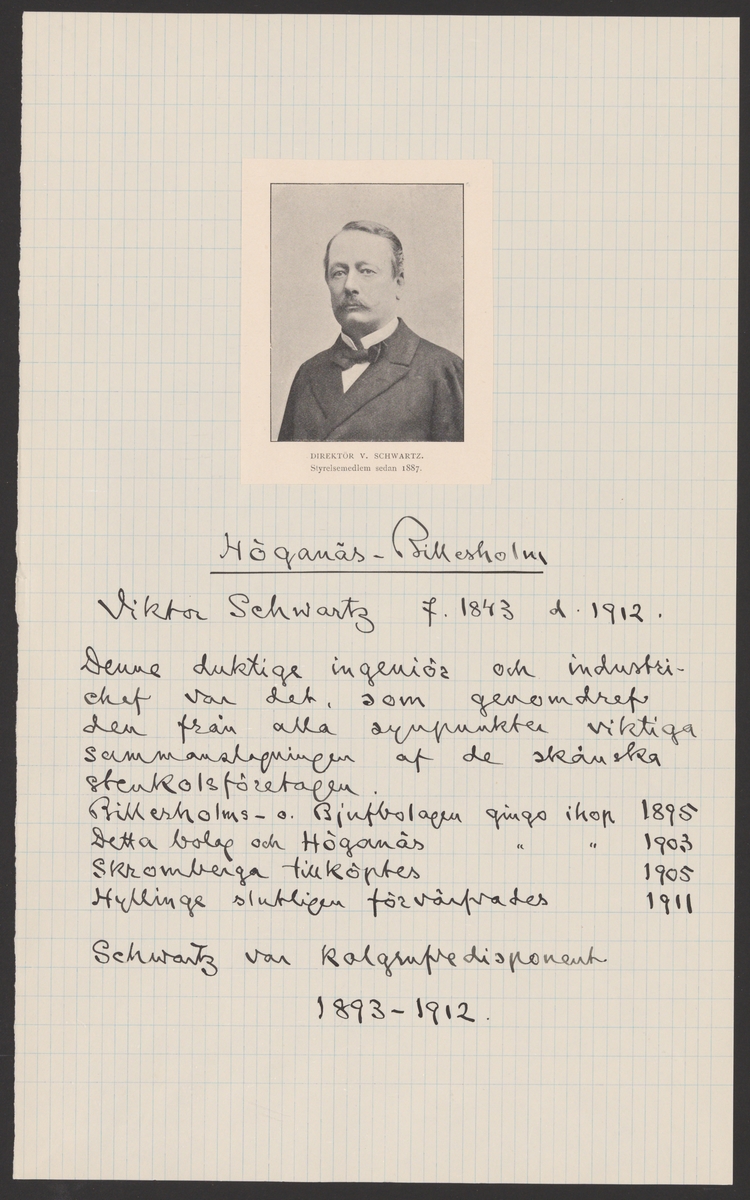 DIREKTÖR V. SCHWARTZ.
Styrelsemedlem sedan 1887.
Höganäs - Billesholm
Viktor Schwartz f. 1843 d. 1912.
Denne duktige ingeniör och industri-
chef var det, som genomdref
den från alla synpunkter viktiga
sammanslagningen af de skånska
stenkolsföretagen.
Billesholms- o. Bjufbolagen gingo ihop 1895
Detta bolag och Höganäs " " 1903
Skromberga tillköptes 1905
Hyllinge slutligen förvärfvades 1911
Schwartz var kolgrufvedisponent
1893-1912.